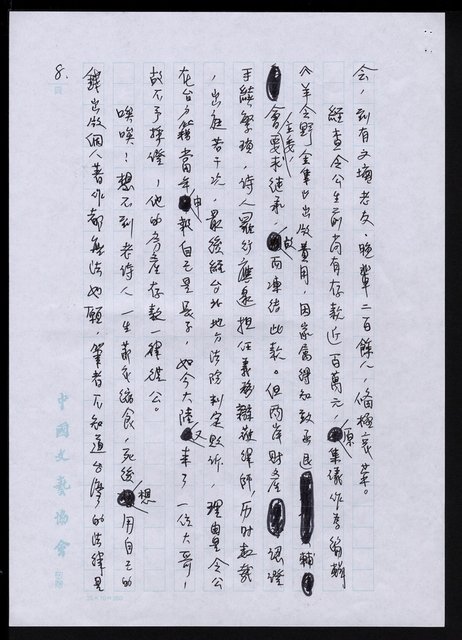 會，到有文壇老友、晚輩二百餘人，備極哀榮。
經查令公生前尚有存款近百萬元，原集議作為編輯
《羊令野全集》出版費用，因家屬得知致函退輔
會要求繼承全遺，故而凍結此款。但兩岸財產認證
手續繁瑣，詩人羅行應邀擔任義務辯護律師，历时數載
，出庭若干次，最後經台北地方法院判定敗訴，理由是令公
在台戶籍當年申報自己是長子，如今大陸又來了一位大哥，
故不予採證，他的房產存款一律從公。
唉唉！想不到老詩人一生節衣縮食，死後想用自己的
錢出版個人著作都無法如願，筆者不知道台灣的法律是
8.
中國文藝協會